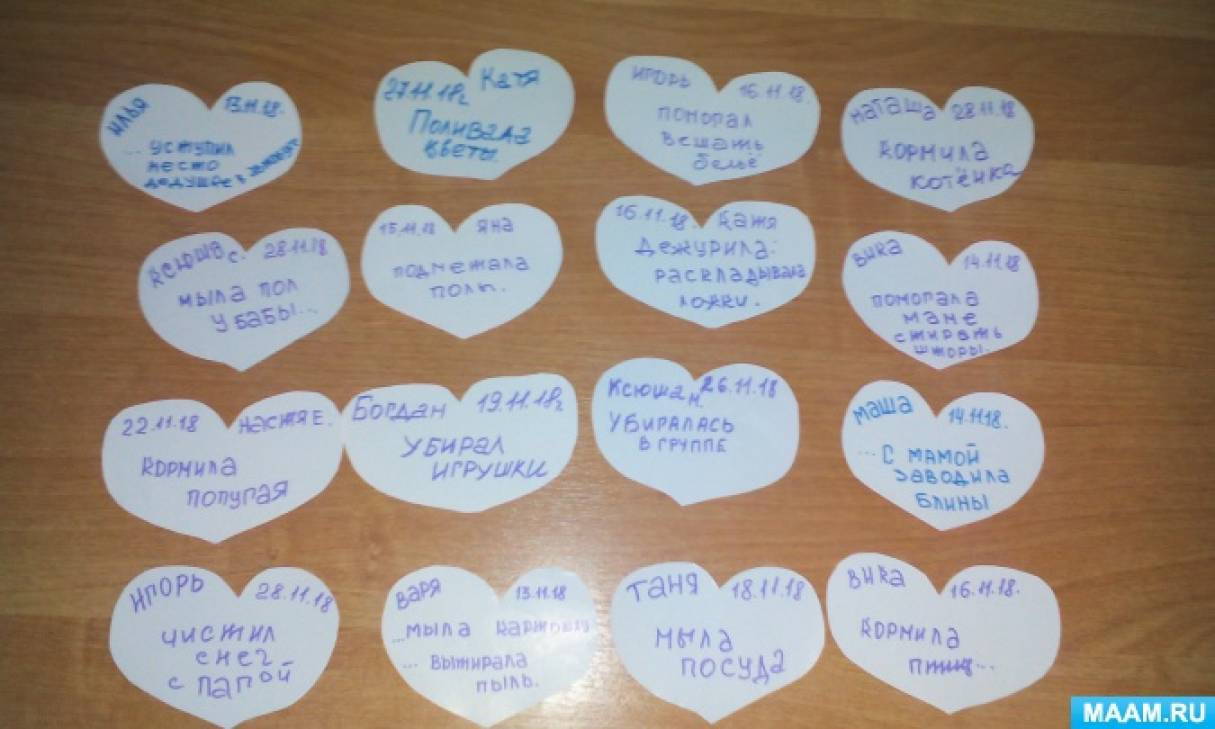 ИЛЬЯ 13.11.18.
... уступил
место
дедушке в
27.11.18г Катя
Поливала
цветы.
ИГОРЬ 16.11.18.
помогал
вешать
бельё
Наташа 28.11.18
кормила
котёнка
Ксюша с. 28.11.18
мыла пол
у бабы...
15.11.18 яна
подметала
полы.
16.11.18. Катя
Дежурила:
раскладывала
ложки.
Вика 14.11.18
помогала
маме
стирать
шторы.
22.11.18 Настя Е.
кормила
попугая
Богдан 19.11.18г
УБИРАЛ
ИГРУШКИ
Ксюша м. 26.11.18
УБИРАЛАСЬ
В ГРУППЕ
Маша 14.11.18.
... С мамой
заводила
блины
ИГОРЬ 28.11.18
чистил
снег
с папой
Варя 13.11.18
...мыла картошку
... вытирала
пыль.
Таня 18.11.18
мыла
посуда
Вика 16.11.18.
кормила
птиц...
MAAM.RU